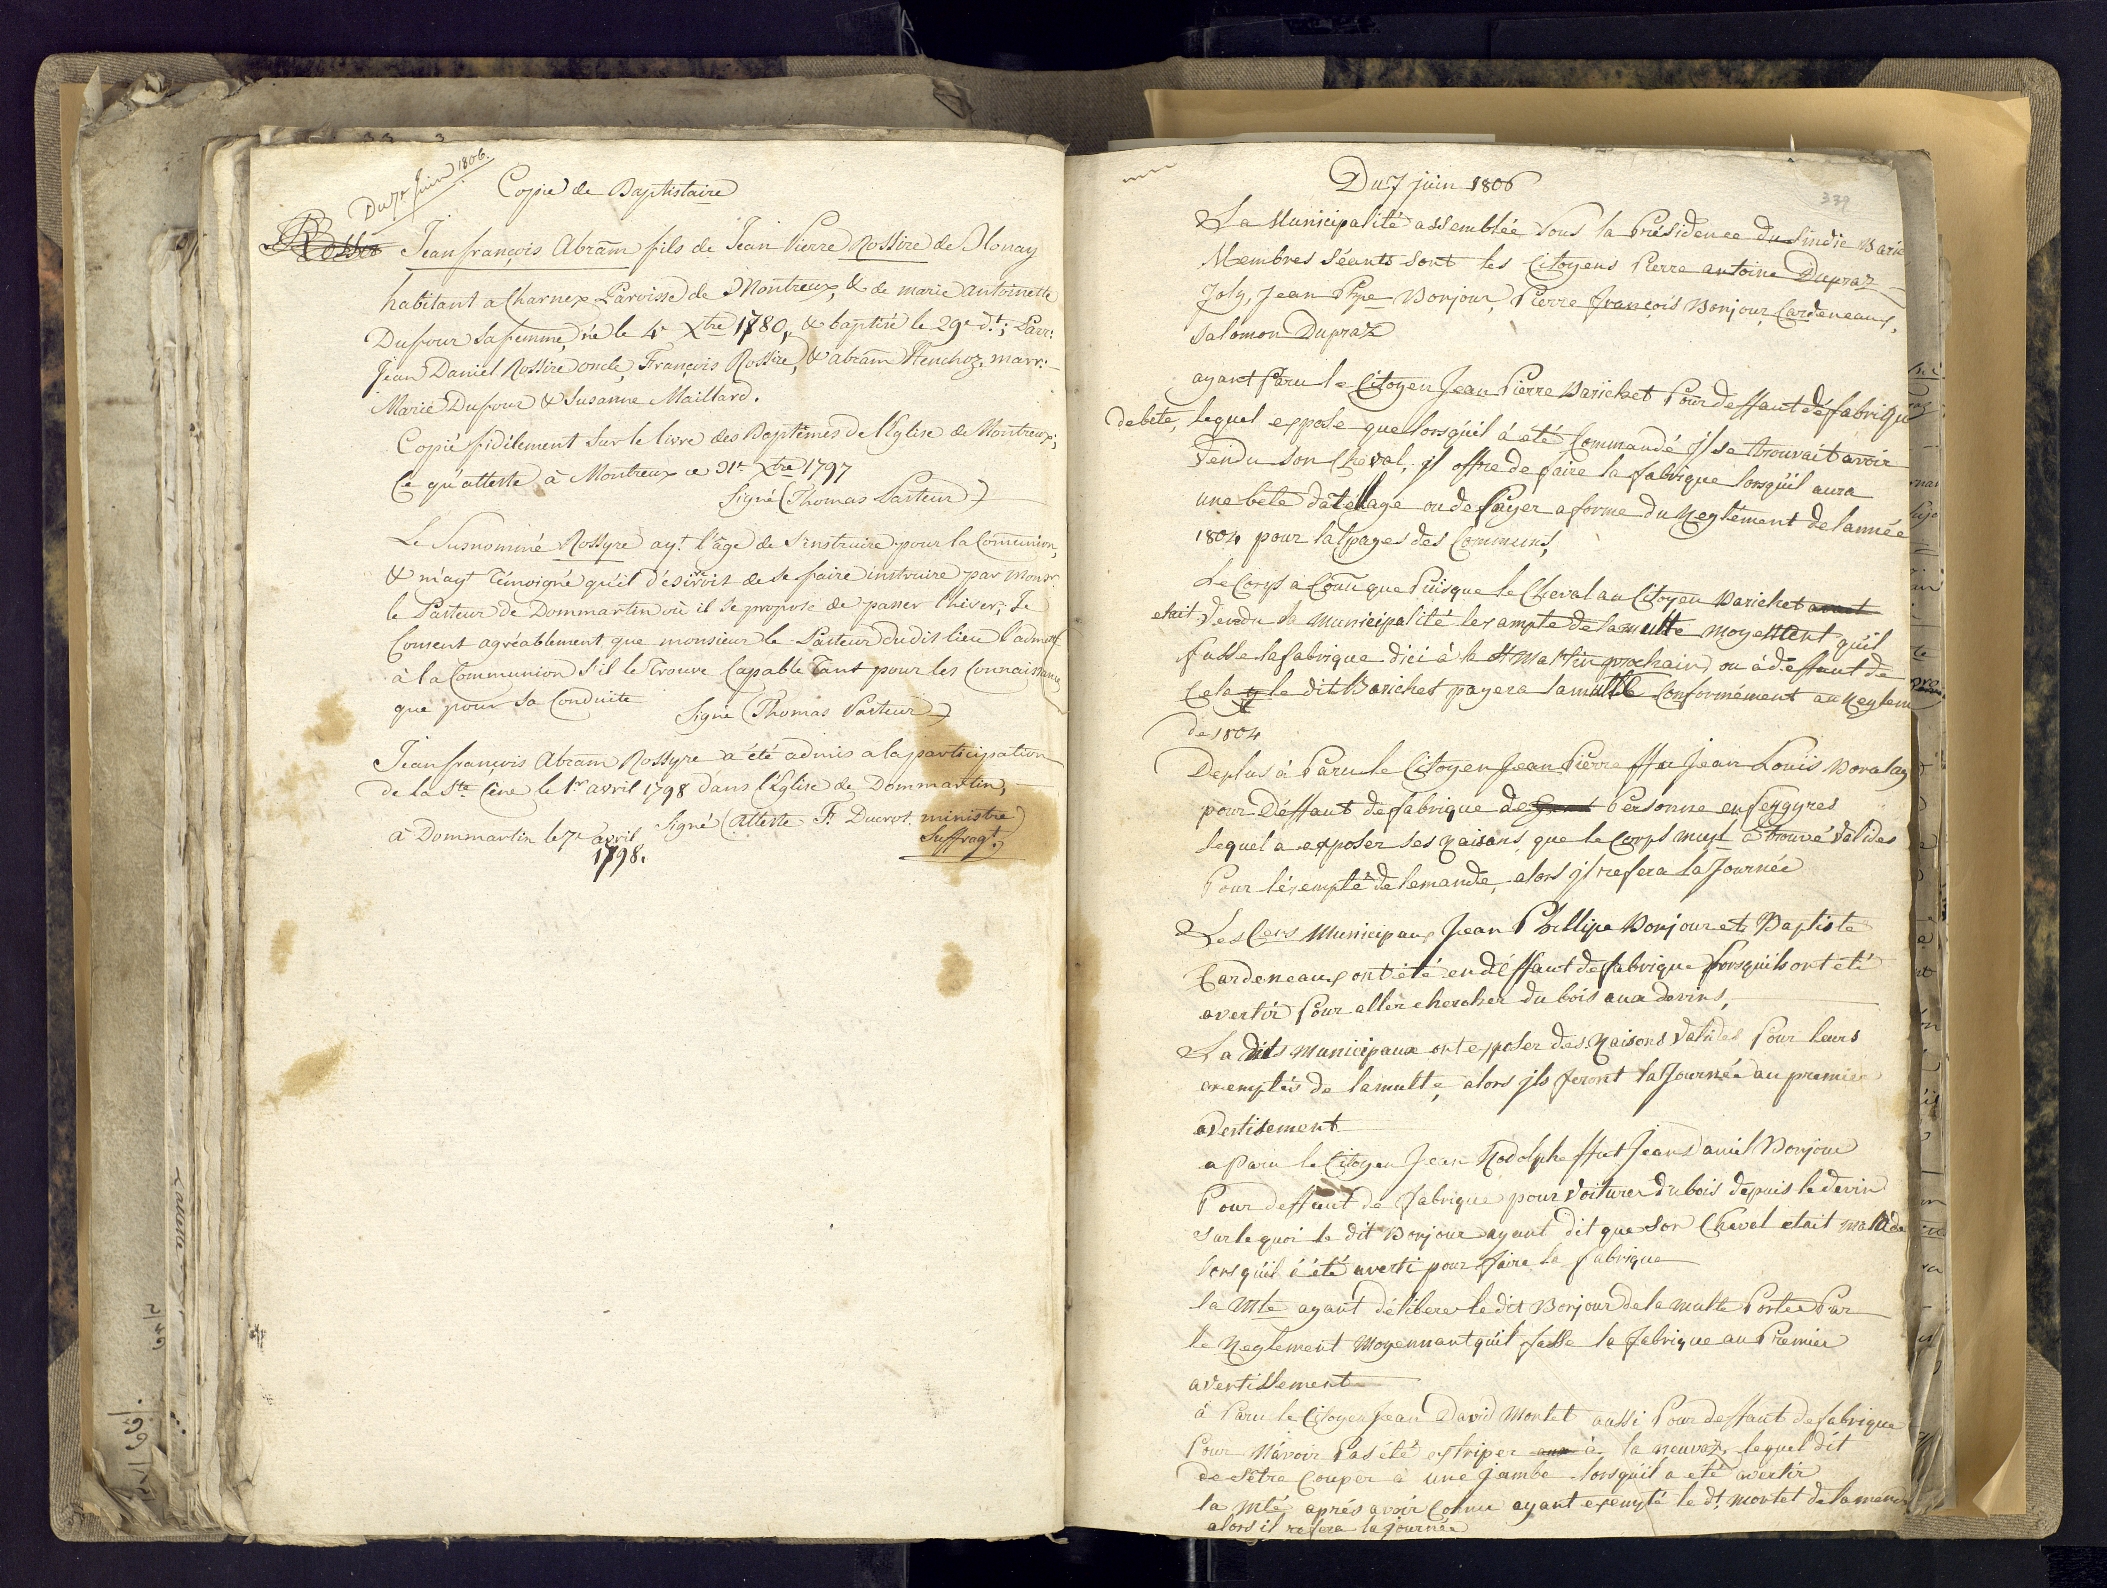 Du 7e Juin 1806.
Copie de Baptistaire
Jean françois Abram fils de Jean Pierre Rossire de Blonay
habitant a Charnex Paroisse de Montreux, & de marie antoinette
Dufour sa femme, né le 4e Xbre 1780, & baptisé le 29e dt; Parr:
Jean Daniel Rossire oncle, François Rossire, & abram Henchoz, marr:
Marie Dufour & Susanne Maillard.
Copié fidélement sur le livre des Baptêmes de l'Eglise de Montreux;
Ce qu'atteste à Montreux ce 31e Xbre 1797
Signé (Thomas Pasteur)
Le Susnommé Rossyre ayt. l'âge de s'instruire pour la Communion,
& m'ayt témoigné qu'il désiroit de se faire instruire par Monsr.
le Pasteur de Dommartin où il se propose de passer l'hiver; Je
Consent agréablement que monsieur le Pasteur dudit lieu l'admette
à la Communion s'il le trouve Capable tant pour les Connaissances
que pour sa Conduite
Signé (Thomas Pasteur)
Jean françois Abram Rossyre a été admis a la participation
de la Ste Cène le 1er avril 1798 dans l'Eglise de Dommartin,
à Dommartin le 7e avril 1798. Signé (atteste F. Ducrot ministre
Suffragt.)
339
Du 7 juin 1806
La Municipalité assemblée sous la Présidence du Sindic Varic
Membres Séants sont les Citoyens Pierre antoine Dupraz
Joly, Jean Phpe Bonjour, Pierre françois Bonjour, Cardeneaux,
Salomon Dupraz
ayant Paru le Citoyen Jean Pierre Barichet Pour deffaut de fabrique
de bete, lequel expose que lorsquil à été Commandé jl se trouvait avoir
Vendu son Cheval, jl offre de faire la fabrique lorsquil aura
une bete datellage ou de Payer a forme du Reglément de lannée
1804 pour lalpages des Communs,
Le Corps a Connu que Puisque le Cheval au Citoyen Barichet avait
etait Vendu la Municipalité lexampte de la multe moyennent quil
fasse la fabrique dici à la St Martin prochain, ou à deffaut de
Cela y le dit Barichet payera la multe Conformément au Reglem
de 1804
Deplus à Paru le Citoyen Jean Pierre ffeu Jean Louis Boralay
pour Déffaut de fabrique de Personne en feygyres
lequel a exposer ses Raisons que le Corps Mupl a trouvé Valides
Pour léxempté de lemande, alors jl refera la Journée
Les Cens Municipaux Jean Phillipe Bonjour et Baptiste
Cardeneaux ont été en déffaut de fabrique lorsquils ont été
avertir Pour aller chercher du bois aux devins,
La dits Municipaux ont exposer des Raisons Valides Pour leurs
exemptés de lamulte, alors jls feront la Journée au premier
avertisement
a Paru le Citoyen Jean Rodolphe ffeu Jean Daniel Bonjour
Pour deffaut de fabrique pour Voiturer du bois depuis le devin
sur le quoi le dit Bonjour ayant dit que son Cheval etait Malade
lorsquil à été averti pour faire la fabrique
la Mté ayant déliberer le dit Bonjour de la Multe Portée Par
le Reglement Moyennant quil fasse la fabrique au Premier
avertissement
à Paru le Citoyen Jean David Montet aussi Pour deffaut de fabrique
Pour N'avoir Pas été extriper à la neuvaz, lequel dit
de s'être Couper à une Jambe lorsquil a été avertir
la Mté après avoir Connu ayant exempté le dt. Montet de lamende
alors il refera la journée